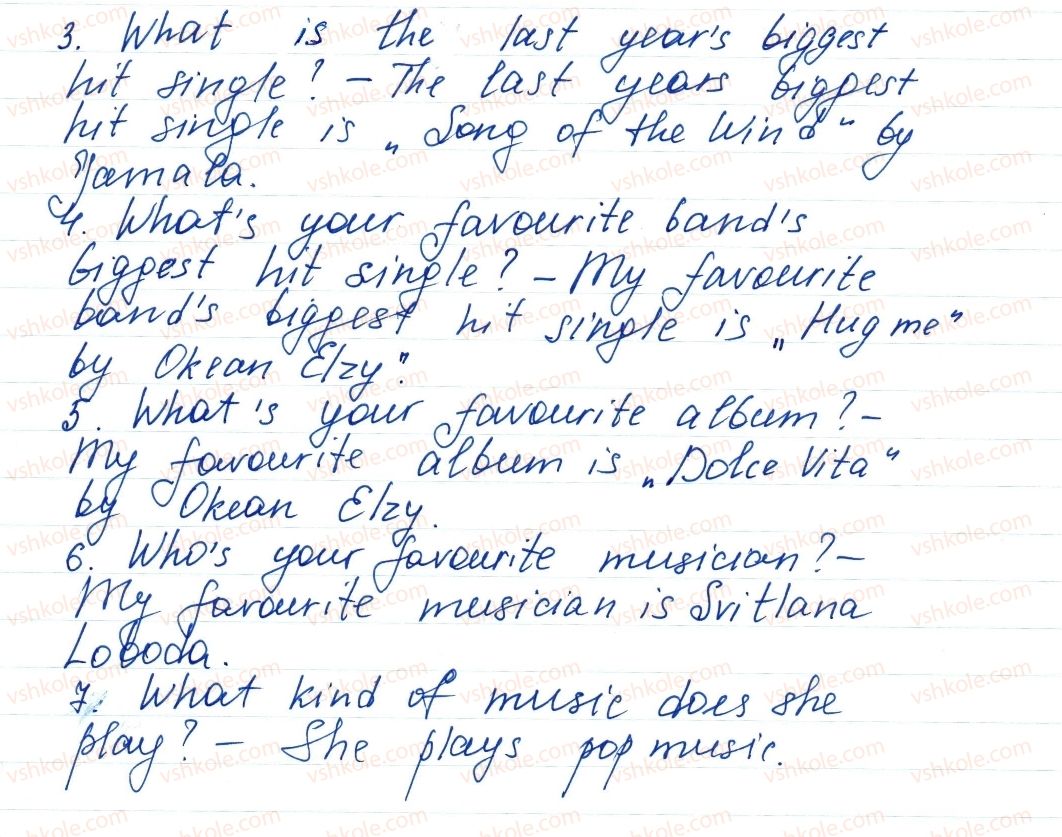 3. What is the last year's biggest
hit single? – The last years biggest
hit single is „Song of the Wind" by
Jamala.
4. What's your favourite band's
biggest hit single? – My favourite
band's biggest hit single is „Hug me"
by Okean Elzy".
5. What's your favourite album? –
My favourite album is „Dolce Vita"
by Okean Elzy.
6. Who's your favourite musician? –
My favourite musician is Svitlana
Loboda.
7. What kind of music does she
play? – She plays pop music.